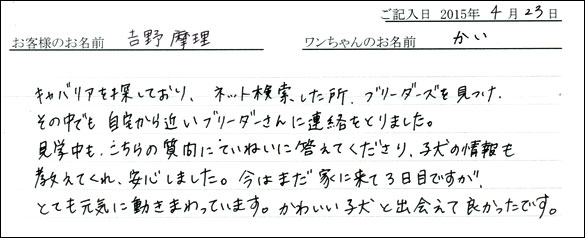 ご記入日 2015年 4 月 23 日
お客様のお名前 吉野 摩理 ワンちゃんのお名前 かい
キャバリアを探しており、ネット検索した所、ブリーダーズを見つけ、
その中でも自宅から近いブリーダーさんに連絡をとりました。
見学中も、こちらの質問にていねいに答えてくださり、子犬の情報も
教えてくれ、安心しました。今はまだ家に来て3日目ですが、
とても元気に動きまわっています。かわいい子犬と出会えて良かったです。